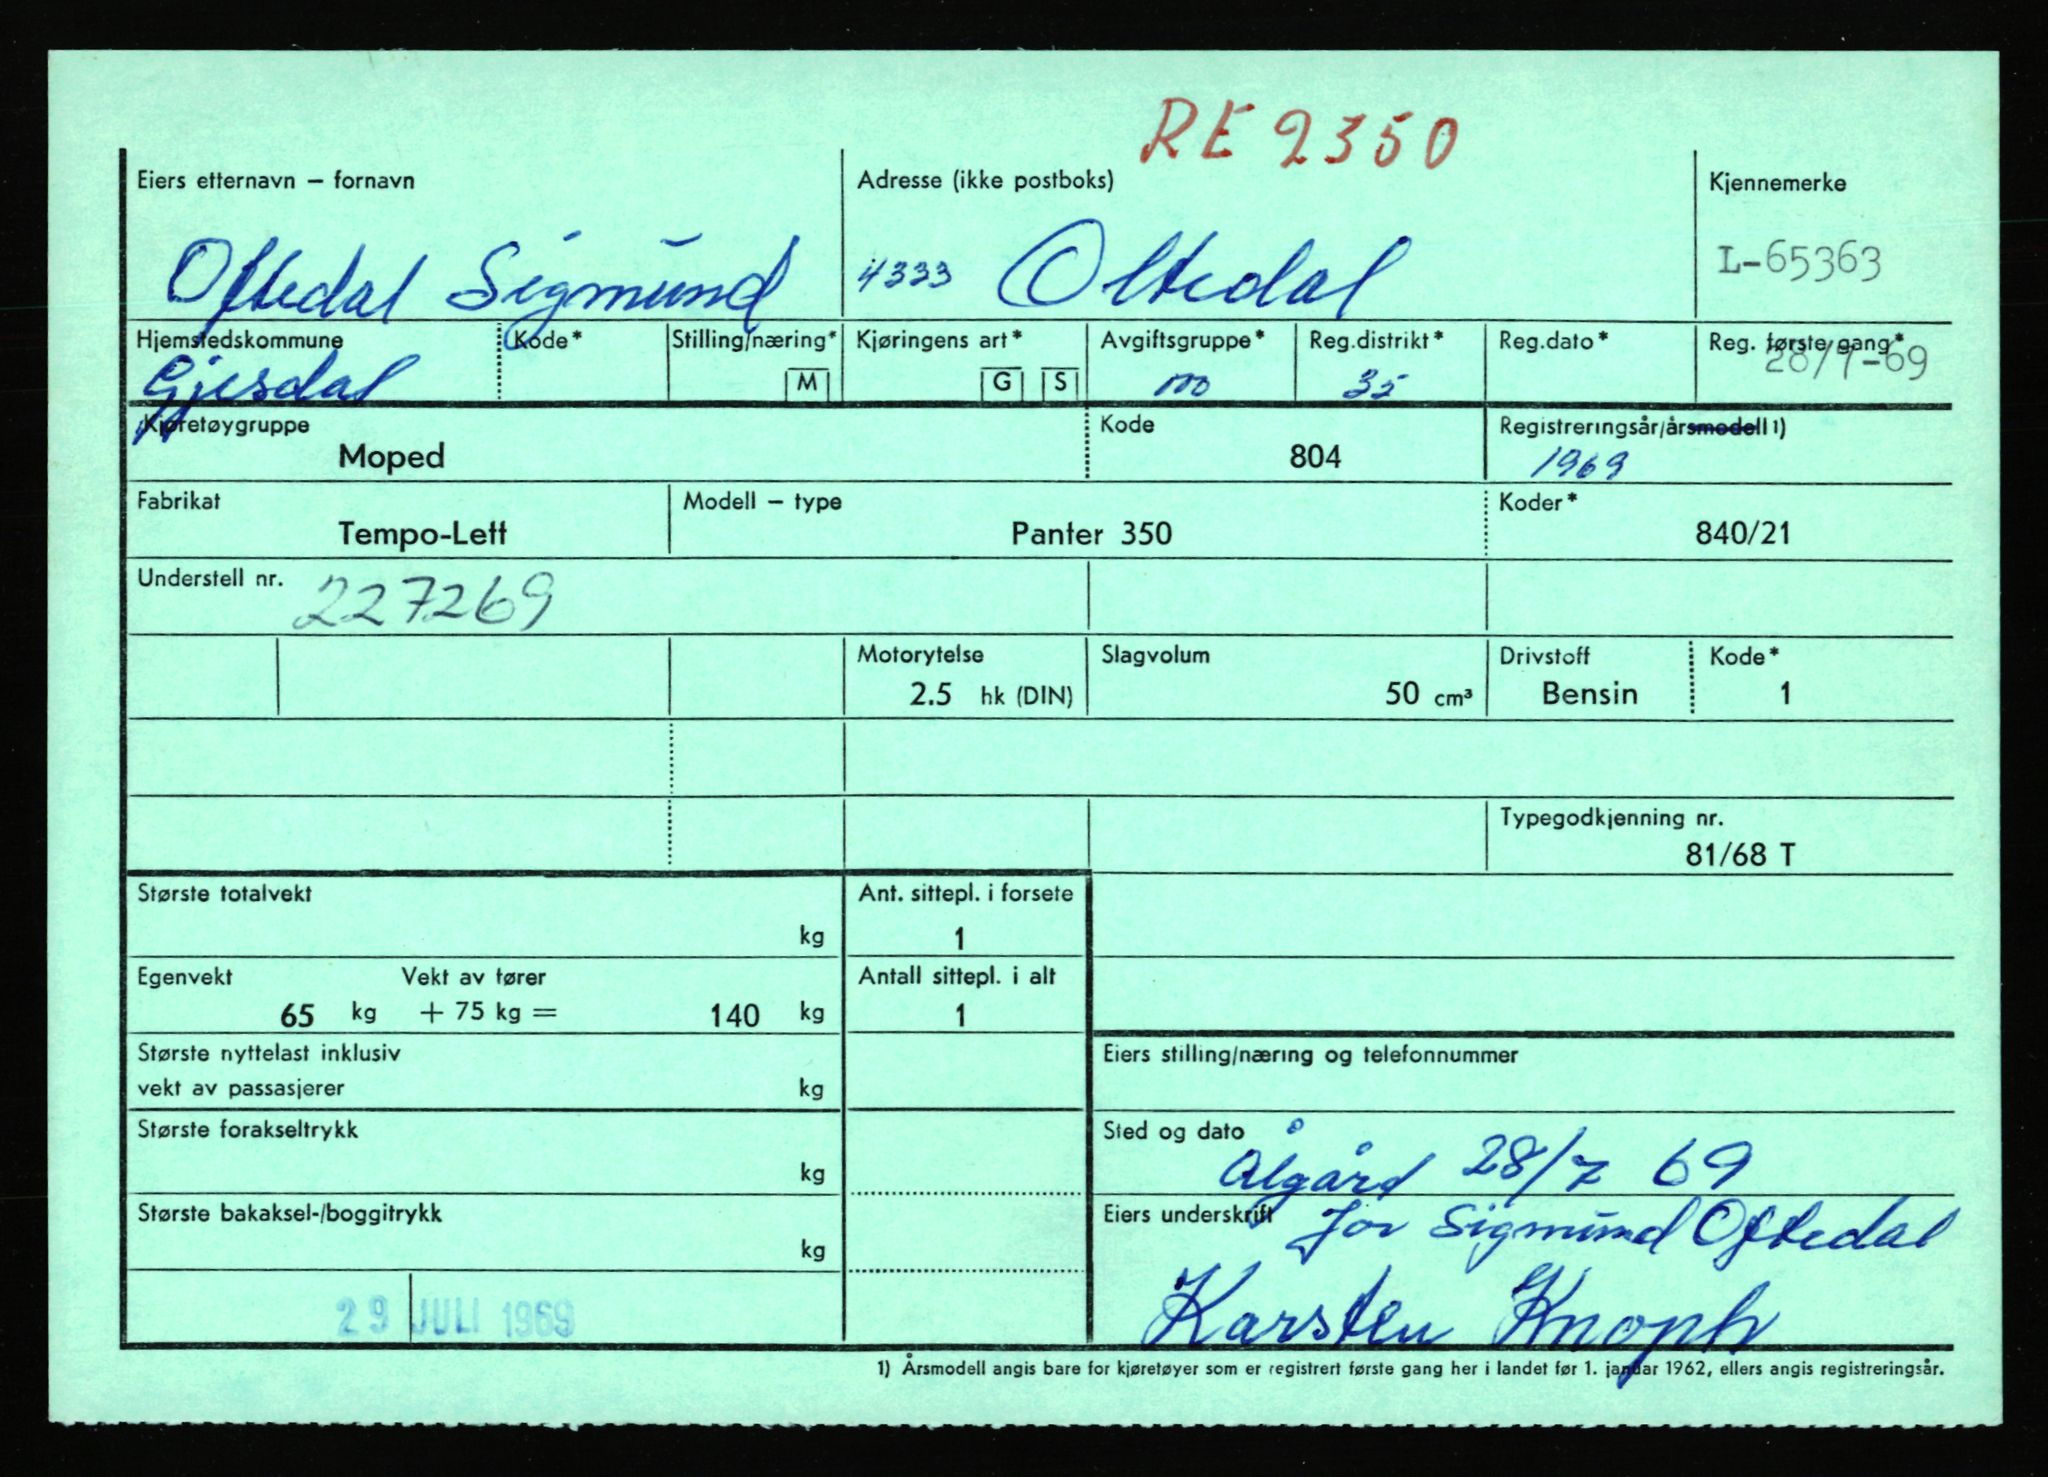 RE 2350
Eiers etternavn – fornavn Adresse (ikke postboks) Kjennemerke
Oftedal Sigmund 4333 Oltedal L-65363
Hjemstedskommune Kode* Stilling/næring* Kjøringens art* Avgiftsgruppe* Reg.distrikt* Reg.dato* Reg. første gang*
Gjesdal M G S m 35 28/7-69
Kjøretøygruppe Kode Registreringsår/årsmodell 1)
Moped 804 1969
Fabrikat Modell – type Koder*
Tempo-Lett Panter 350 840/21
Understell nr. 227269
Motorytelse Slagvolum Drivstoff Kode*
2.5 hk (DIN) 50 cm³ Bensin 1
Typegodkjenning nr.
81/68 T
Største totalvekt Ant. sittepl. i forsete
kg 1
Egenvekt Vekt av fører Antall sittepl. i alt
65 kg + 75 kg = 140 kg 1
Største nyttelast inklusiv Eiers stilling/næring og telefonnummer
vekt av passasjerer kg
Største forakseltrykk Sted og dato
kg Ålgård 28/7 69
Største bakaksel-/boggitrykk Eiers underskrift for Sigmund Oftedal
kg
29 JULI 1969 Karsten Knoph
1) Årsmodell angis bare for kjøretøyer som er registrert første gang her i landet før 1. januar 1962, ellers angis registreringsår.